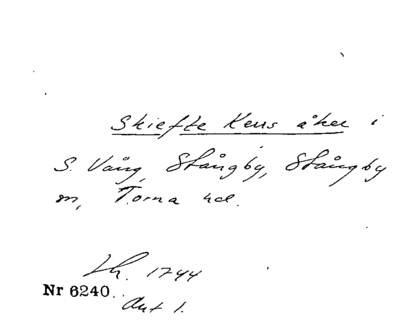 Skiefte Kens åker i
S. Vång, Stångby, Stångby
m, Torna hd.
Lh. 1744
Nr 6240.
Akt 1.